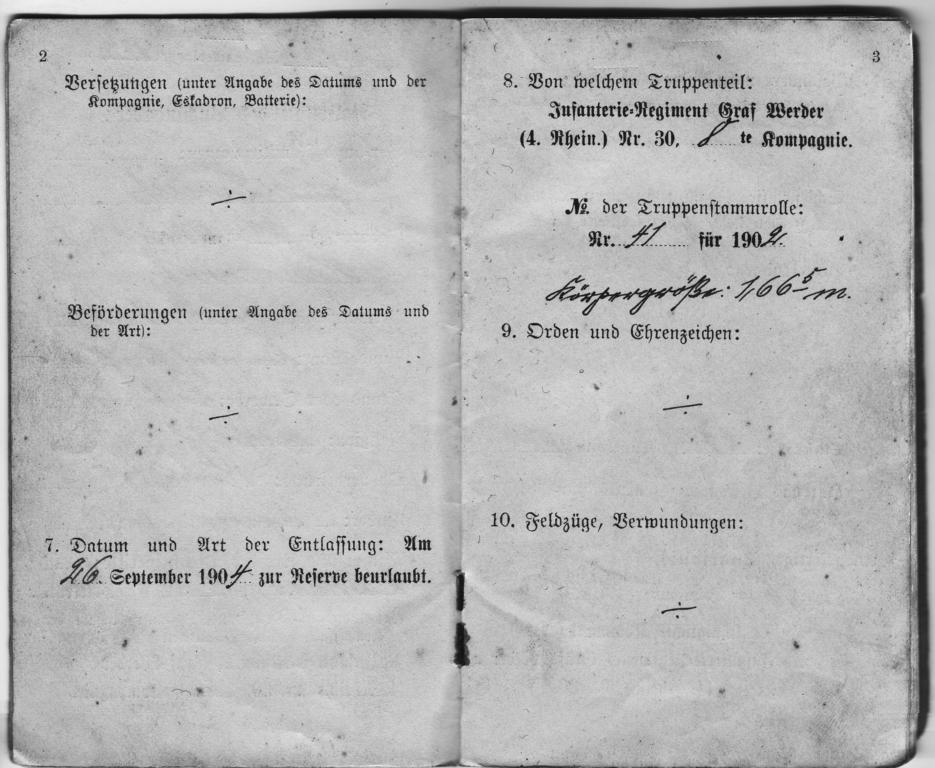 2
Versetzungen (unter Angabe des Datums und der
Kompagnie, Eskadron, Batterie):
÷
Beförderungen (unter Angabe des Datums und
der Art):
÷
7. Datum und Art der Entlassung: Am
26. September 1904 zur Reserve beurlaubt.
3
8. Von welchem Truppenteil:
Infanterie-Regiment Graf Werder
(4. Rhein.) Nr. 30, 8 te Kompagnie.
№ der Truppenstammrolle:
Nr. 41 für 1902.
Körpergröße: 1,66⁵ m.
9. Orden und Ehrenzeichen:
÷
10. Feldzüge, Verwundungen:
÷